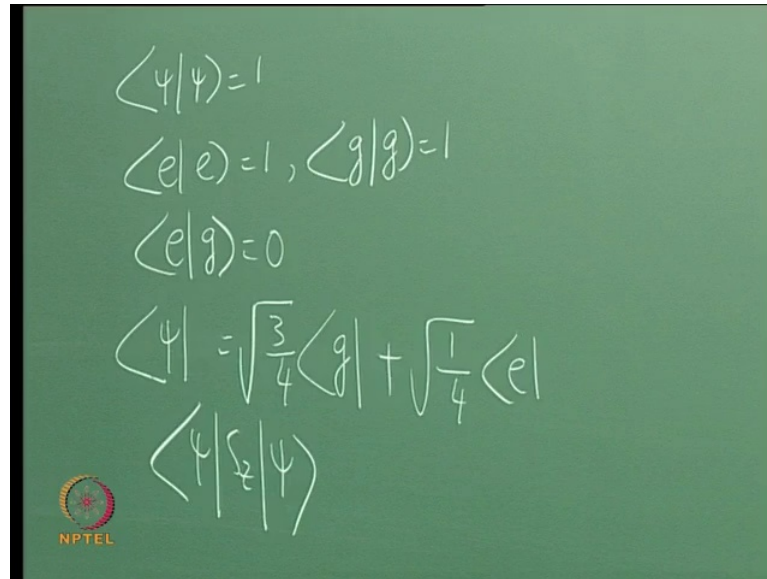 ⟨ψ|ψ⟩=1
⟨e|e⟩=1, ⟨g|g⟩=1
⟨e|g⟩=0
⟨ψ| = √(3/4)⟨g| + √(1/4)⟨e|
⟨ψ|S_z|ψ⟩
NPTEL